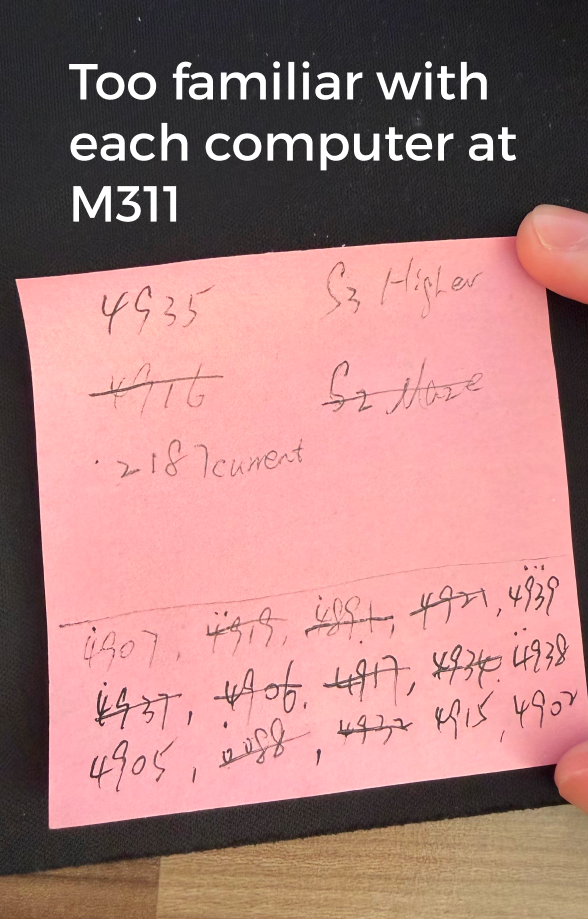 Too familiar with
each computer at
M311
4935 S3 Higher
4916 S2 Maze
· 2187 current
4907, 4919, 4891, 4921, 4939
4937, 4906, 4917, 4934, 4938
4905, 0088, 4932 4915, 4902